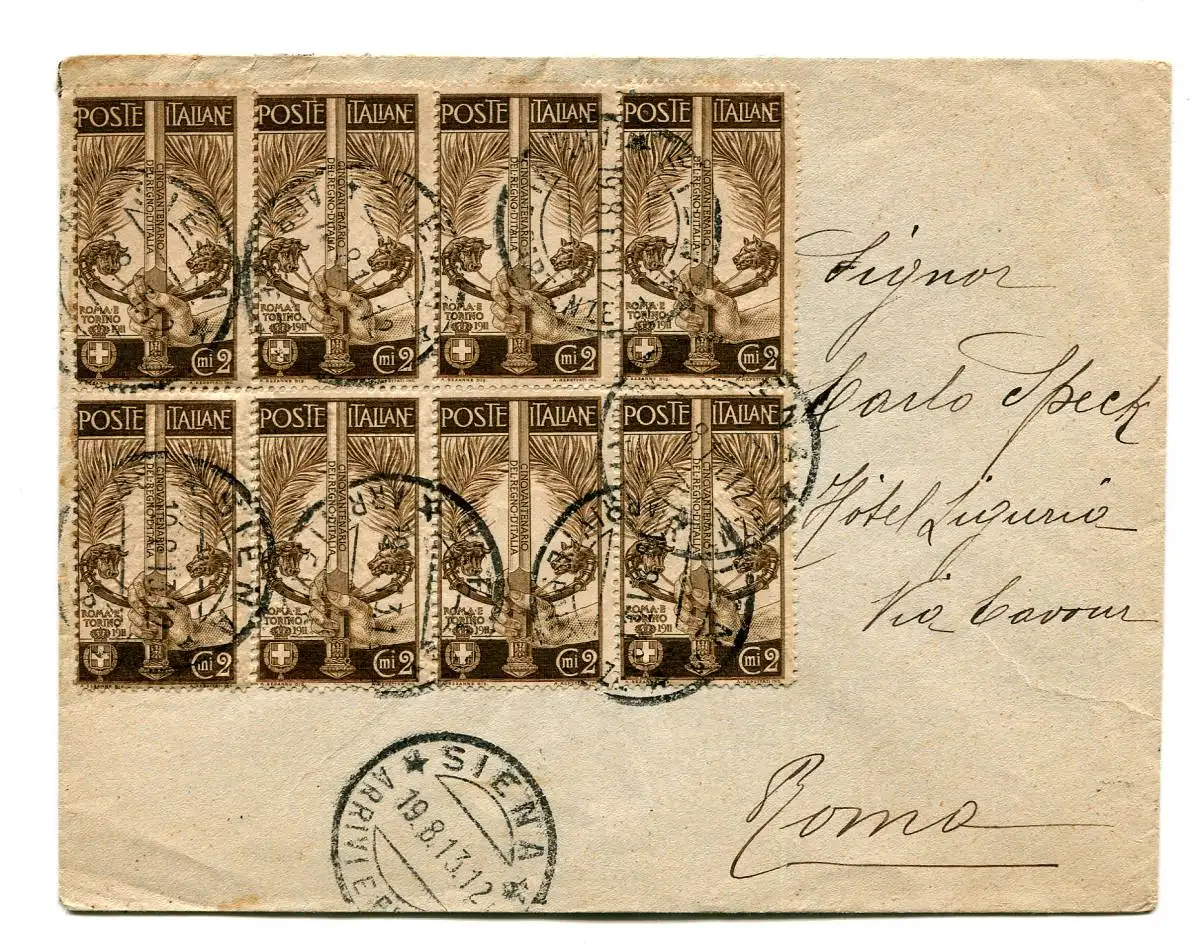 POSTE ITALIANE POSTE ITALIANE POSTE ITALIANE POSTE ITALIANE
CINQVANTENARIO CINQVANTENARIO CINQVANTENARIO CINQVANTENARIO
DEL REGNO D'ITALIA DEL REGNO D'ITALIA DEL REGNO D'ITALIA DEL REGNO D'ITALIA
ROMA E ROMA E ROMA E ROMA E
TORINO TORINO TORINO TORINO
1911 1911 1911 1911
Cmi 2 Cmi 2 Cmi 2 Cmi 2
POSTE ITALIANE POSTE ITALIANE POSTE ITALIANE POSTE ITALIANE
CINQVANTENARIO CINQVANTENARIO CINQVANTENARIO CINQVANTENARIO
DEL REGNO D'ITALIA DEL REGNO D'ITALIA DEL REGNO D'ITALIA DEL REGNO D'ITALIA
ROMA E ROMA E ROMA E ROMA E
TORINO TORINO TORINO TORINO
1911 1911 1911 1911
Cmi 2 Cmi 2 Cmi 2 Cmi 2
Signor
Carlo Speck
Hôtel Liguria
Via Cavour
Roma
SIENA
19.8.13.12
ARRIVI E